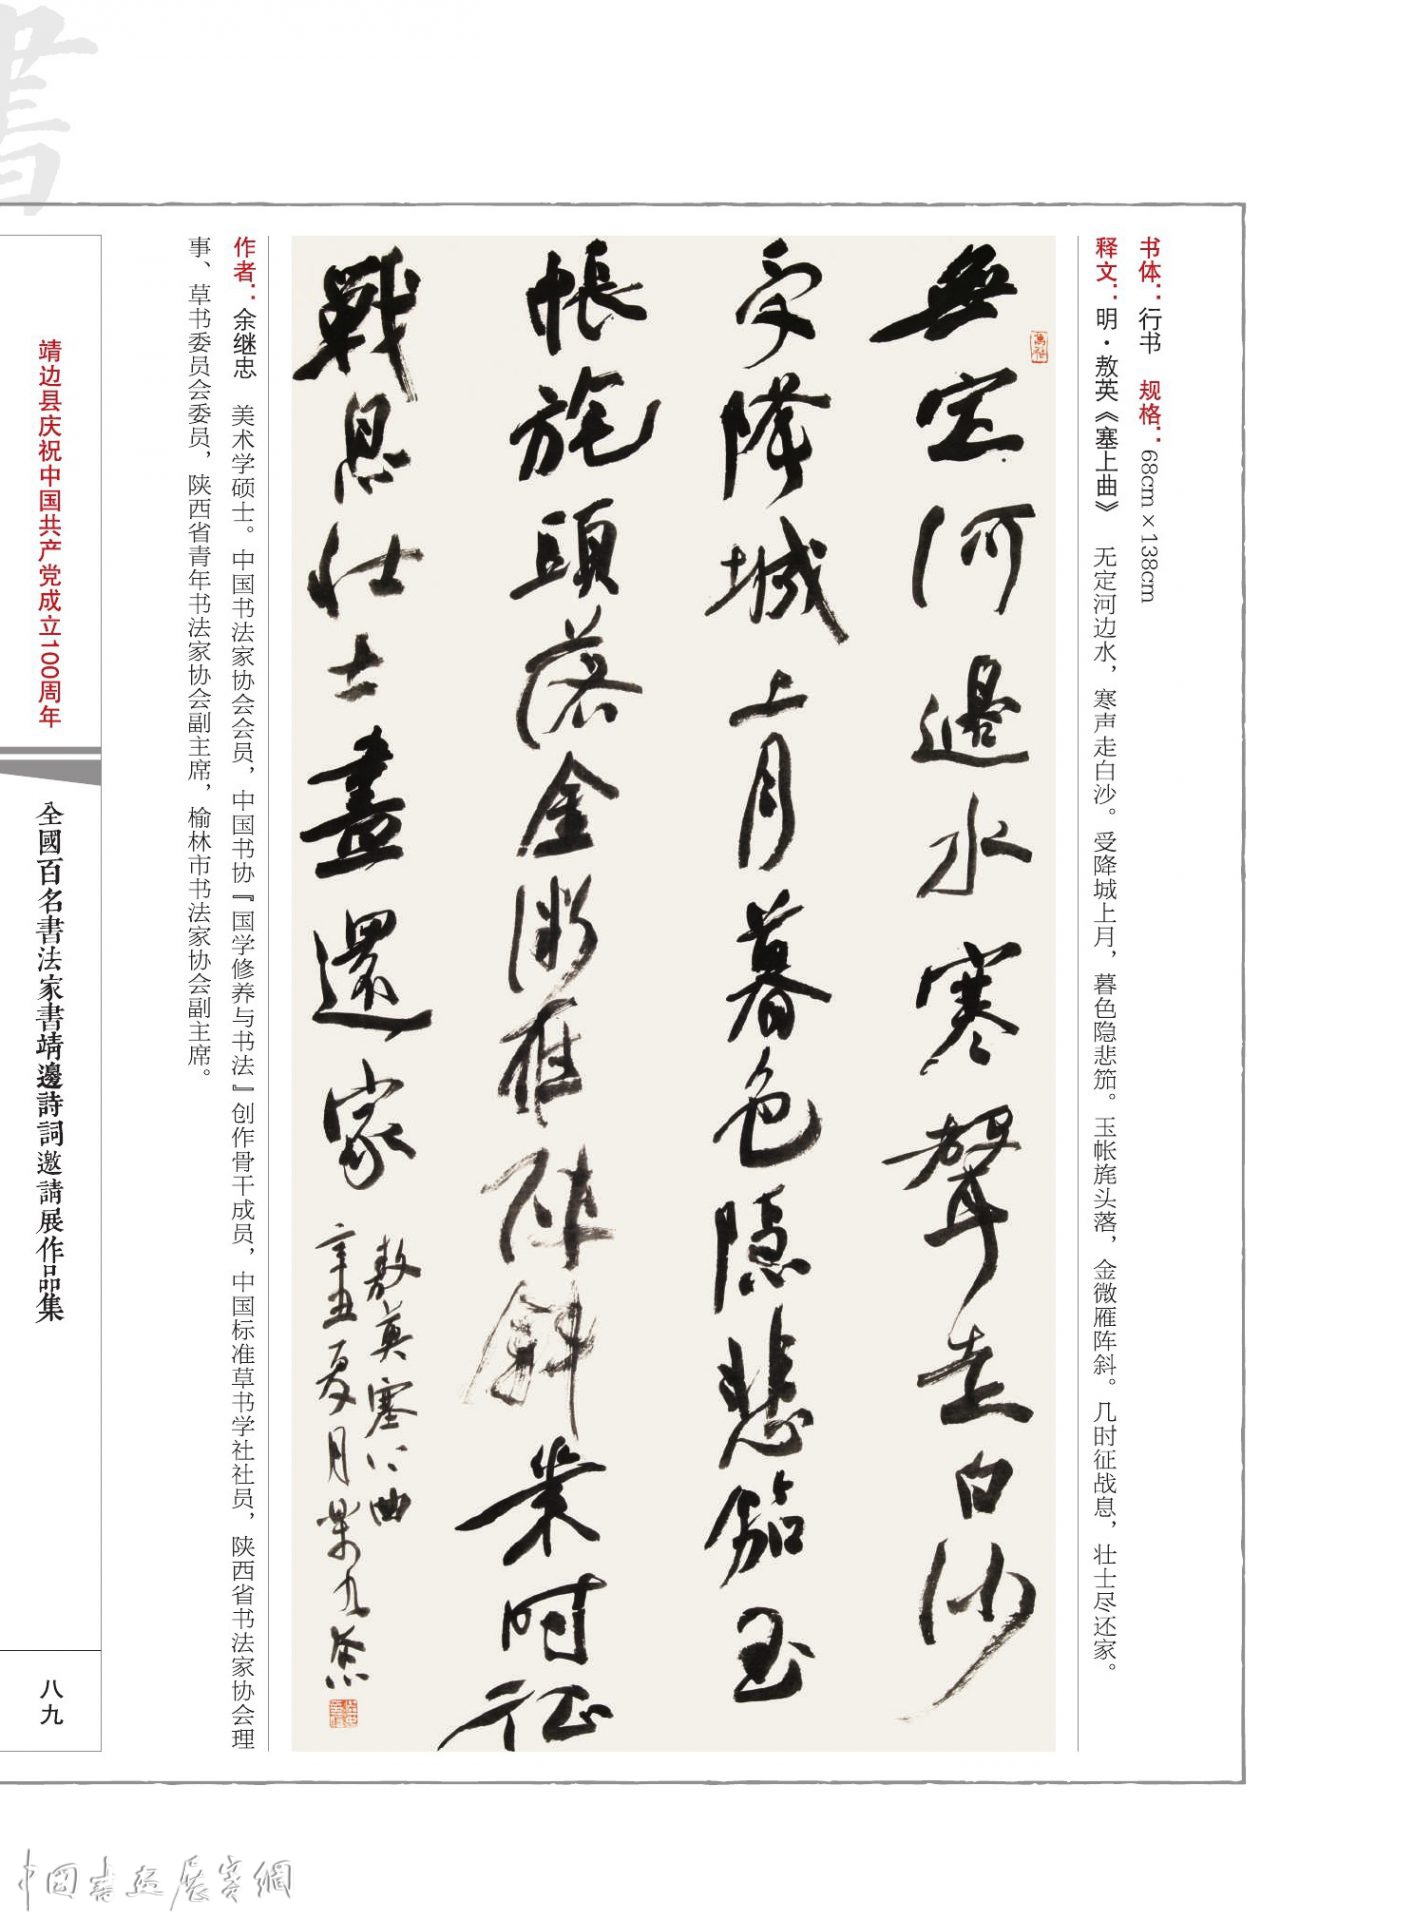 書
书体：行书 规格：68cm×138cm
释文：明·敖英《塞上曲》 无定河边水，寒声走白沙。受降城上月，暮色隐悲笳。玉帐旄头落，金微雁阵斜。几时征战息，壮士尽还家。
無定河邊水寒聲走白沙
受降城上月暮色隱悲笳玉
帳旄頭落金微雁陣斜幾時征
戰息壯士盡還家
敖英塞上曲
辛丑夏月
作者：余继忠 美术学硕士。中国书法家协会会员，中国书协『国学修养与书法』创作骨干成员，中国标准草书学社社员，陕西省书法家协会理
事、草书委员会委员，陕西省青年书法家协会副主席，榆林市书法家协会副主席。
靖边县庆祝中国共产党成立100周年
全國百名書法家書靖邊詩詞邀請展作品集
八九
中國書畫展賽網